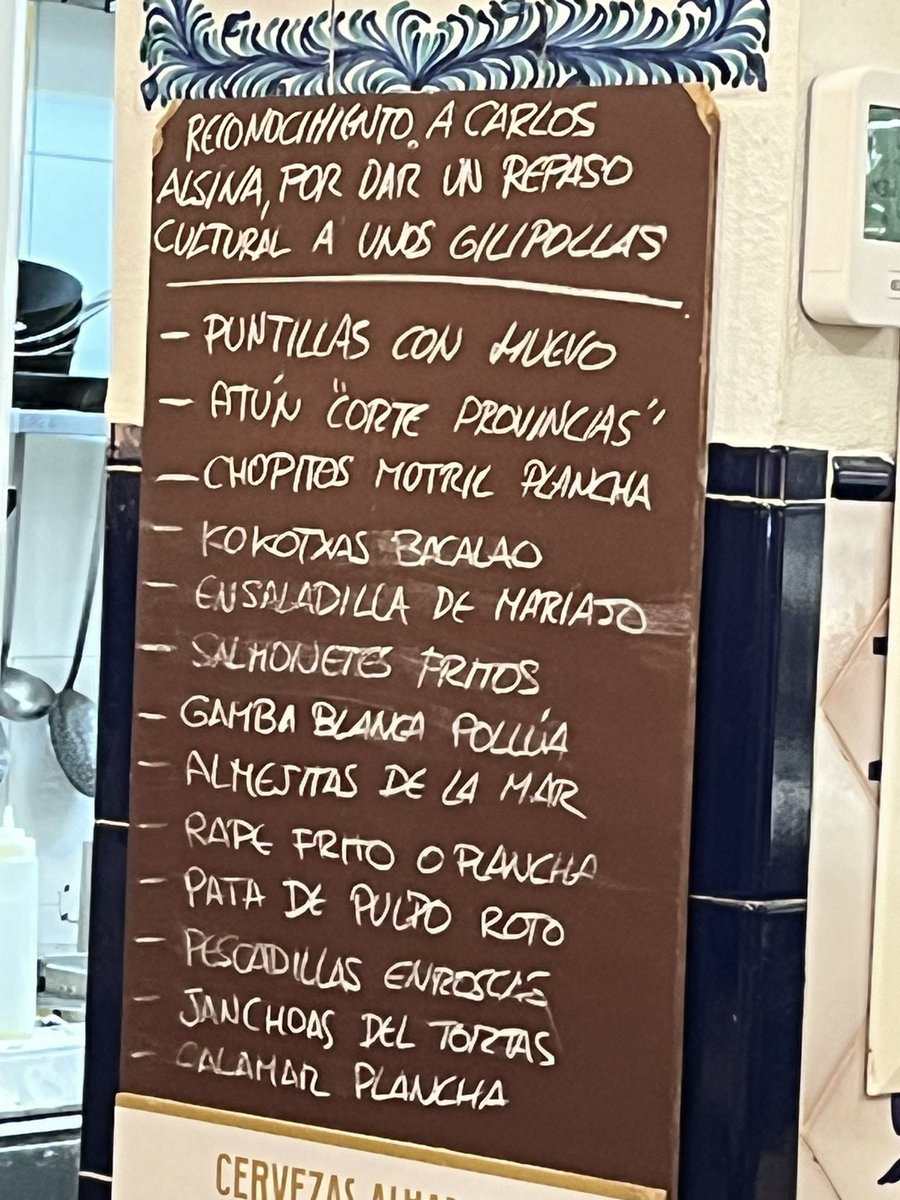 RECONOCIMIENTO A CARLOS
ALSINA, POR DAR UN REPASO
CULTURAL A UNOS GILIPOLLAS
- PUNTILLAS CON HUEVO
- ATÚN "CORTE PROVINCIAS"
- CHOPITOS MOTRIL PLANCHA
- KOKOTXAS BACALAO
- ENSALADILLA DE MARIAJO
- SALMONETES FRITOS
- GAMBA BLANCA POLLÚA
- ALMEJITAS DE LA MAR
- RAPE FRITO O PLANCHA
- PATA DE PULPO ROTO
- PESCADILLAS ENROSCÁS
- JANCHOAS DEL TORTAS
- CALAMAR PLANCHA
CERVEZAS